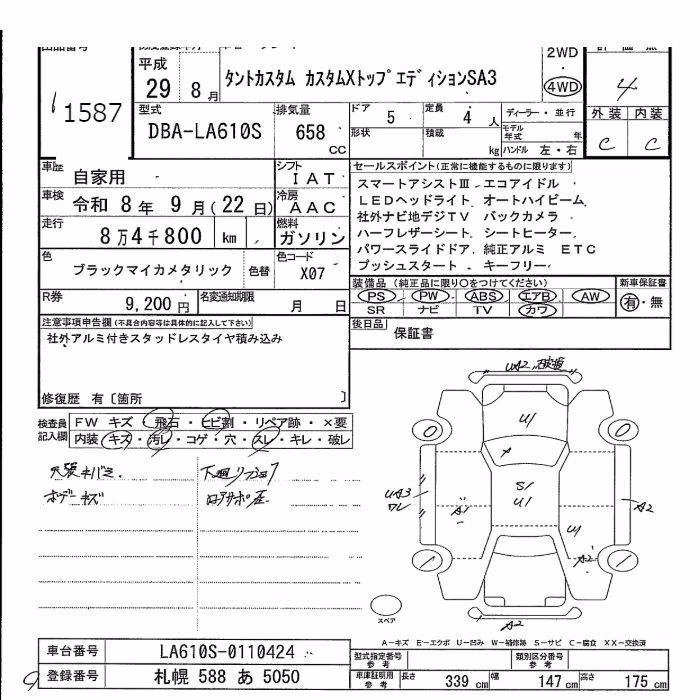 1587
平成
29 8月
タントカスタム カスタムXトップエディションSA3
2WD
・
4WD
4
外装 内装
C C
型式
DBA-LA610S
排気量
658
cc
ドア
5
定員
4 人
ディーラー・並行
形状
積載
kg
モデル年式 年
ハンドル 左・右
車歴
自家用
シフト
IAT
車検
令和 8年 9月(22日)
冷房
AAC
走行
8万4千800 km
燃料
ガソリン
色
ブラックマイカメタリック
色替
色コード
X07
R券
9,200円
名変通知期限
月 日
セールスポイント(正常に機能するものに限ります)
スマートアシストⅢ エコアイドル
LEDヘッドライト オートハイビーム
社外ナビ地デジTV バックカメラ
ハーフレザーシート シートヒーター
パワースライドドア 純正アルミ ETC
プッシュスタート キーフリー
装備品(純正品に限り○をつけてください)
PS PW ABS エアB AW
SR ナビ TV カワ
新車保証書
有・無
後日品
保証書
注意事項申告欄(不具合内容等は具体的に記入して下さい)
社外アルミ付きスタッドレスタイヤ積み込み
修復歴 有〔箇所 〕
検査員記入欄
FW キズ・飛石・ヒビ割・リペア跡・×要
内装 キズ・汚レ・コゲ・穴・スレ・キレ・破レ
天張キバミ
ボデーキズ
UA2
U/
S/
U/
UA3
ワレ
A1
A2
U/
A2
A2
スペア
A-キズ E-エクボ U-凹み W-補修跡 S-サビ C-腐食 XX-交換済
車台番号
LA610S-0110424
登録番号
札幌 588 あ 5050
型式指定番号
参考
類別区分番号
参考
車庫証明用
参考
長さ
339 cm
幅
147 cm
高さ
175 cm